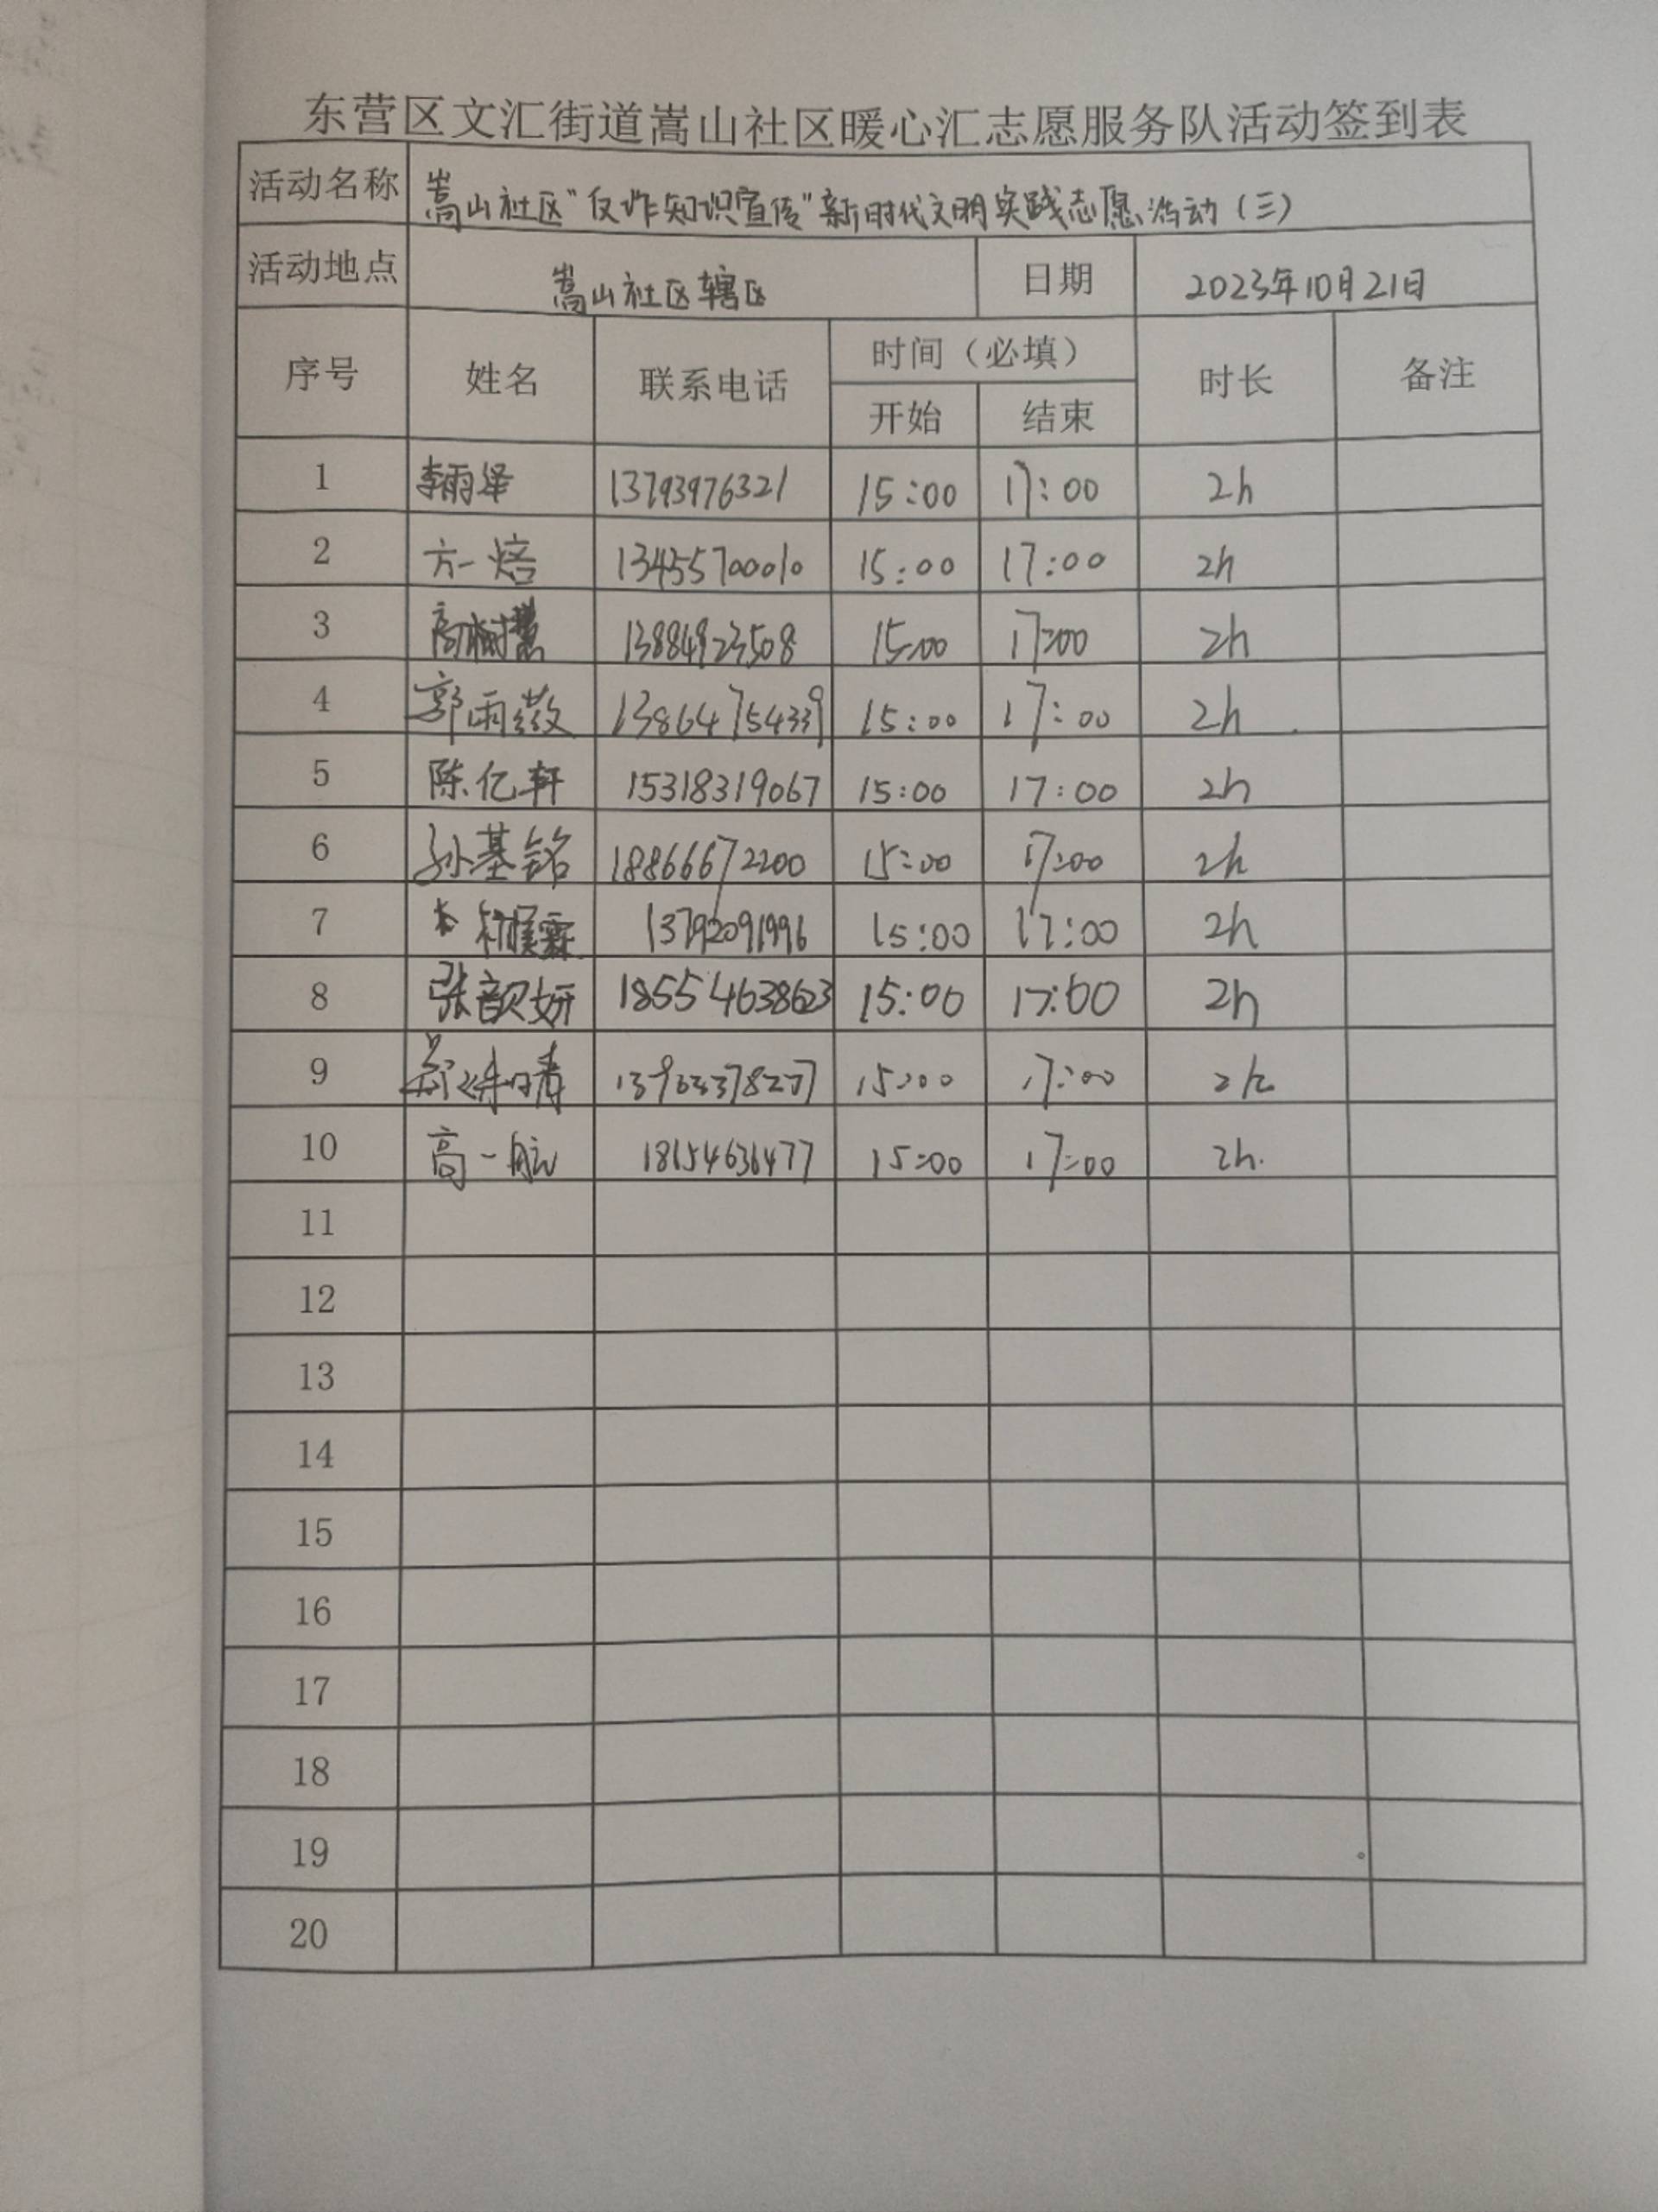 东营区文汇街道嵩山社区暖心汇志愿服务队活动签到表
活动名称 嵩山社区“反诈知识宣传”新时代文明实践志愿活动（三）
活动地点 嵩山社区辖区 日期 2023年10月21日
序号 姓名 联系电话 时间（必填） 时长 备注
开始 结束
1 李雨泽 13793976321 15:00 17:00 2h
2 方一焙 13455700010 15:00 17:00 2h
3 高树慧 13884923508 15:00 17:00 2h
4 郭雨 13864754339 15:00 17:00 2h
5 陈亿轩 15318319067 15:00 17:00 2h
6 孙基铭 18866672200 15:00 17:00 2h
7 13792091996 15:00 17:00 2h
8 张韵妍 18554638623 15:00 17:00 2h
9 15:00 17:00 2h
10 高一航 18154636477 15:00 17:00 2h.
11
12
13
14
15
16
17
18
19
20